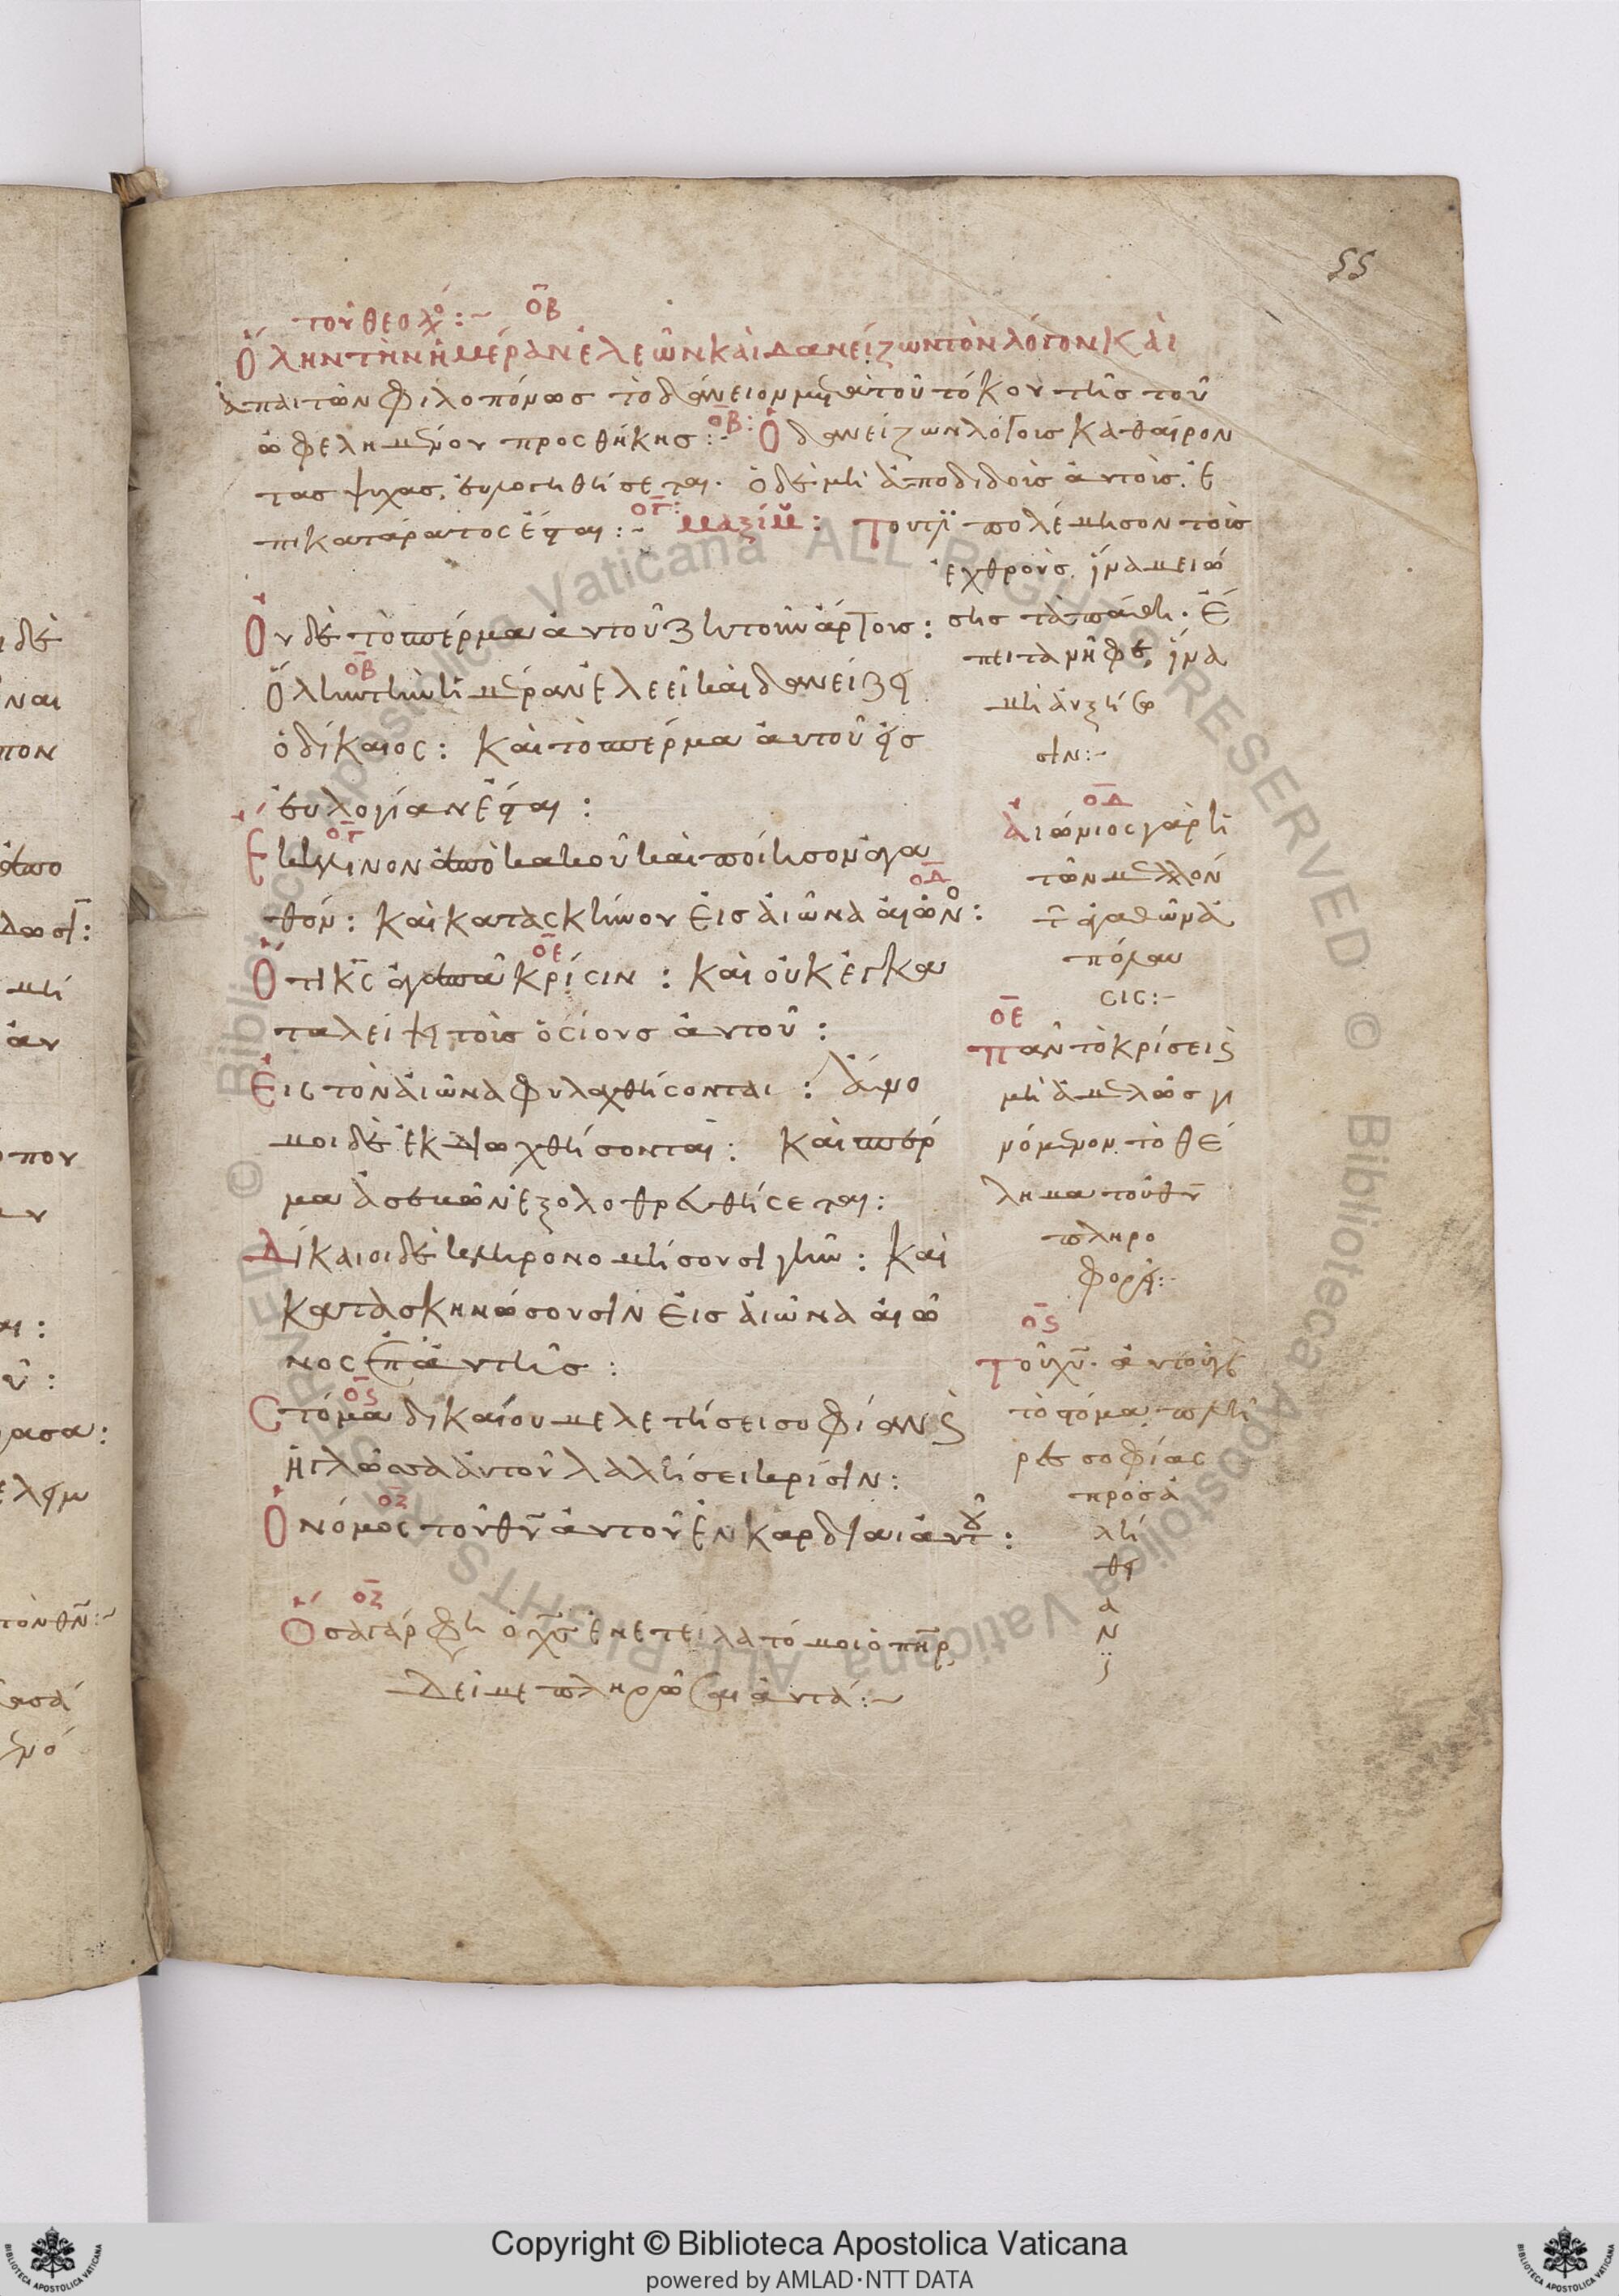 55
τοῦ θεολό:~ ΟΒ
Ὅλην τὴν ἡμέραν ἐλεῶν καὶ δανείζων τὸν λόγον καὶ
ἀπαιτῶν φιλοπόνως τὸ δάνειον μετὰ τοῦ τόκου τῆς τοῦ
ὠφελημένου προσθήκης:~ ΟΒ: Ὁ δανείζων λόγους καθαίρον
τας ψυχὰς, εὐλογηθήσεται. ὁ δὲ μὴ ἀποδιδοὺς αὐτοὺς, ἐ
πικατάρατος ἔσται:~ ΟΓ: μαξίμου: τουτέστι πολέμησον τοὺς
ἐχθροὺς, ἵνα μειώ
σῃς τὰ πάθη. ἔ
πειτα νῆφε, ἵνα
μὴ αὐξήσω
σιν:~
Οὐδὲ τὸ σπέρμα αὐτοῦ ζητοῦν ἄρτους:
ΟΒ
Ὅλην τὴν ἡμέραν ἐλεεῖ καὶ δανείζει
ὁ δίκαιος: καὶ τὸ σπέρμα αὐτοῦ εἰς
εὐλογίαν ἔσται:
ΟΓ
Ἔκκλινον ἀπὸ κακοῦ καὶ ποίησον ἀγα
ΟΔ
θόν: καὶ κατασκήνου εἰς αἰῶνα αἰῶνο:
ΟΕ
Ὅτι κς ἀγαπᾶ κρίσιν: καὶ οὐκ ἐγκα
ταλείψει τοὺς ὁσίους αὐτοῦ:
Εἰς τὸν αἰῶνα φυλαχθήσονται: ἄνο
μοι δὲ ἐκδιωχθήσονται: καὶ σπέρ
μα ἀσεβῶν ἐξολοθρευθήσεται:
Δίκαιοι δὲ κληρονομήσουσι γῆν: καὶ
κατασκηνώσουσιν εἰς αἰῶνα αἰῶ
νος ἐπ' αὐτῆς:
Ος
Στόμα δικαίου μελετήσει σοφίαν ϗ
ἡ γλῶσσα αὐτοῦ λαλήσει κρίσιν:
ΟΖ
Ὁ νόμος τοῦ θυ αὐτοῦ ἐν καρδίαι αὐτοῦ:
ΟΔ
Αἰώνιος γὰρ ἡ
τῶν μελλόν
τ ἀγαθῶν ἀ
πόλαυ
σις:~
ΟΕ
Πᾶν τὸ κρίσεις
μὴ ἀμελῶς γι
νόμενον τὸ θέ
λημα τοῦ θυ
πληρο
φορεῖ:~
Ος
Τοῦ χυ. αὐτοῦ γὰρ
τὸ στόμα πλῆ
ρες σοφίας
πρὸς ἀ
λή
θει
α
ν
:~
ΟΖ
Ὅσα γάρ φη ὁ χς ἐνετείλατό μοι ὁ πηρ,
δεῖ με πληρῶσαι αὐτά:~
Copyright © Biblioteca Apostolica Vaticana
powered by AMLAD·NTT DATA